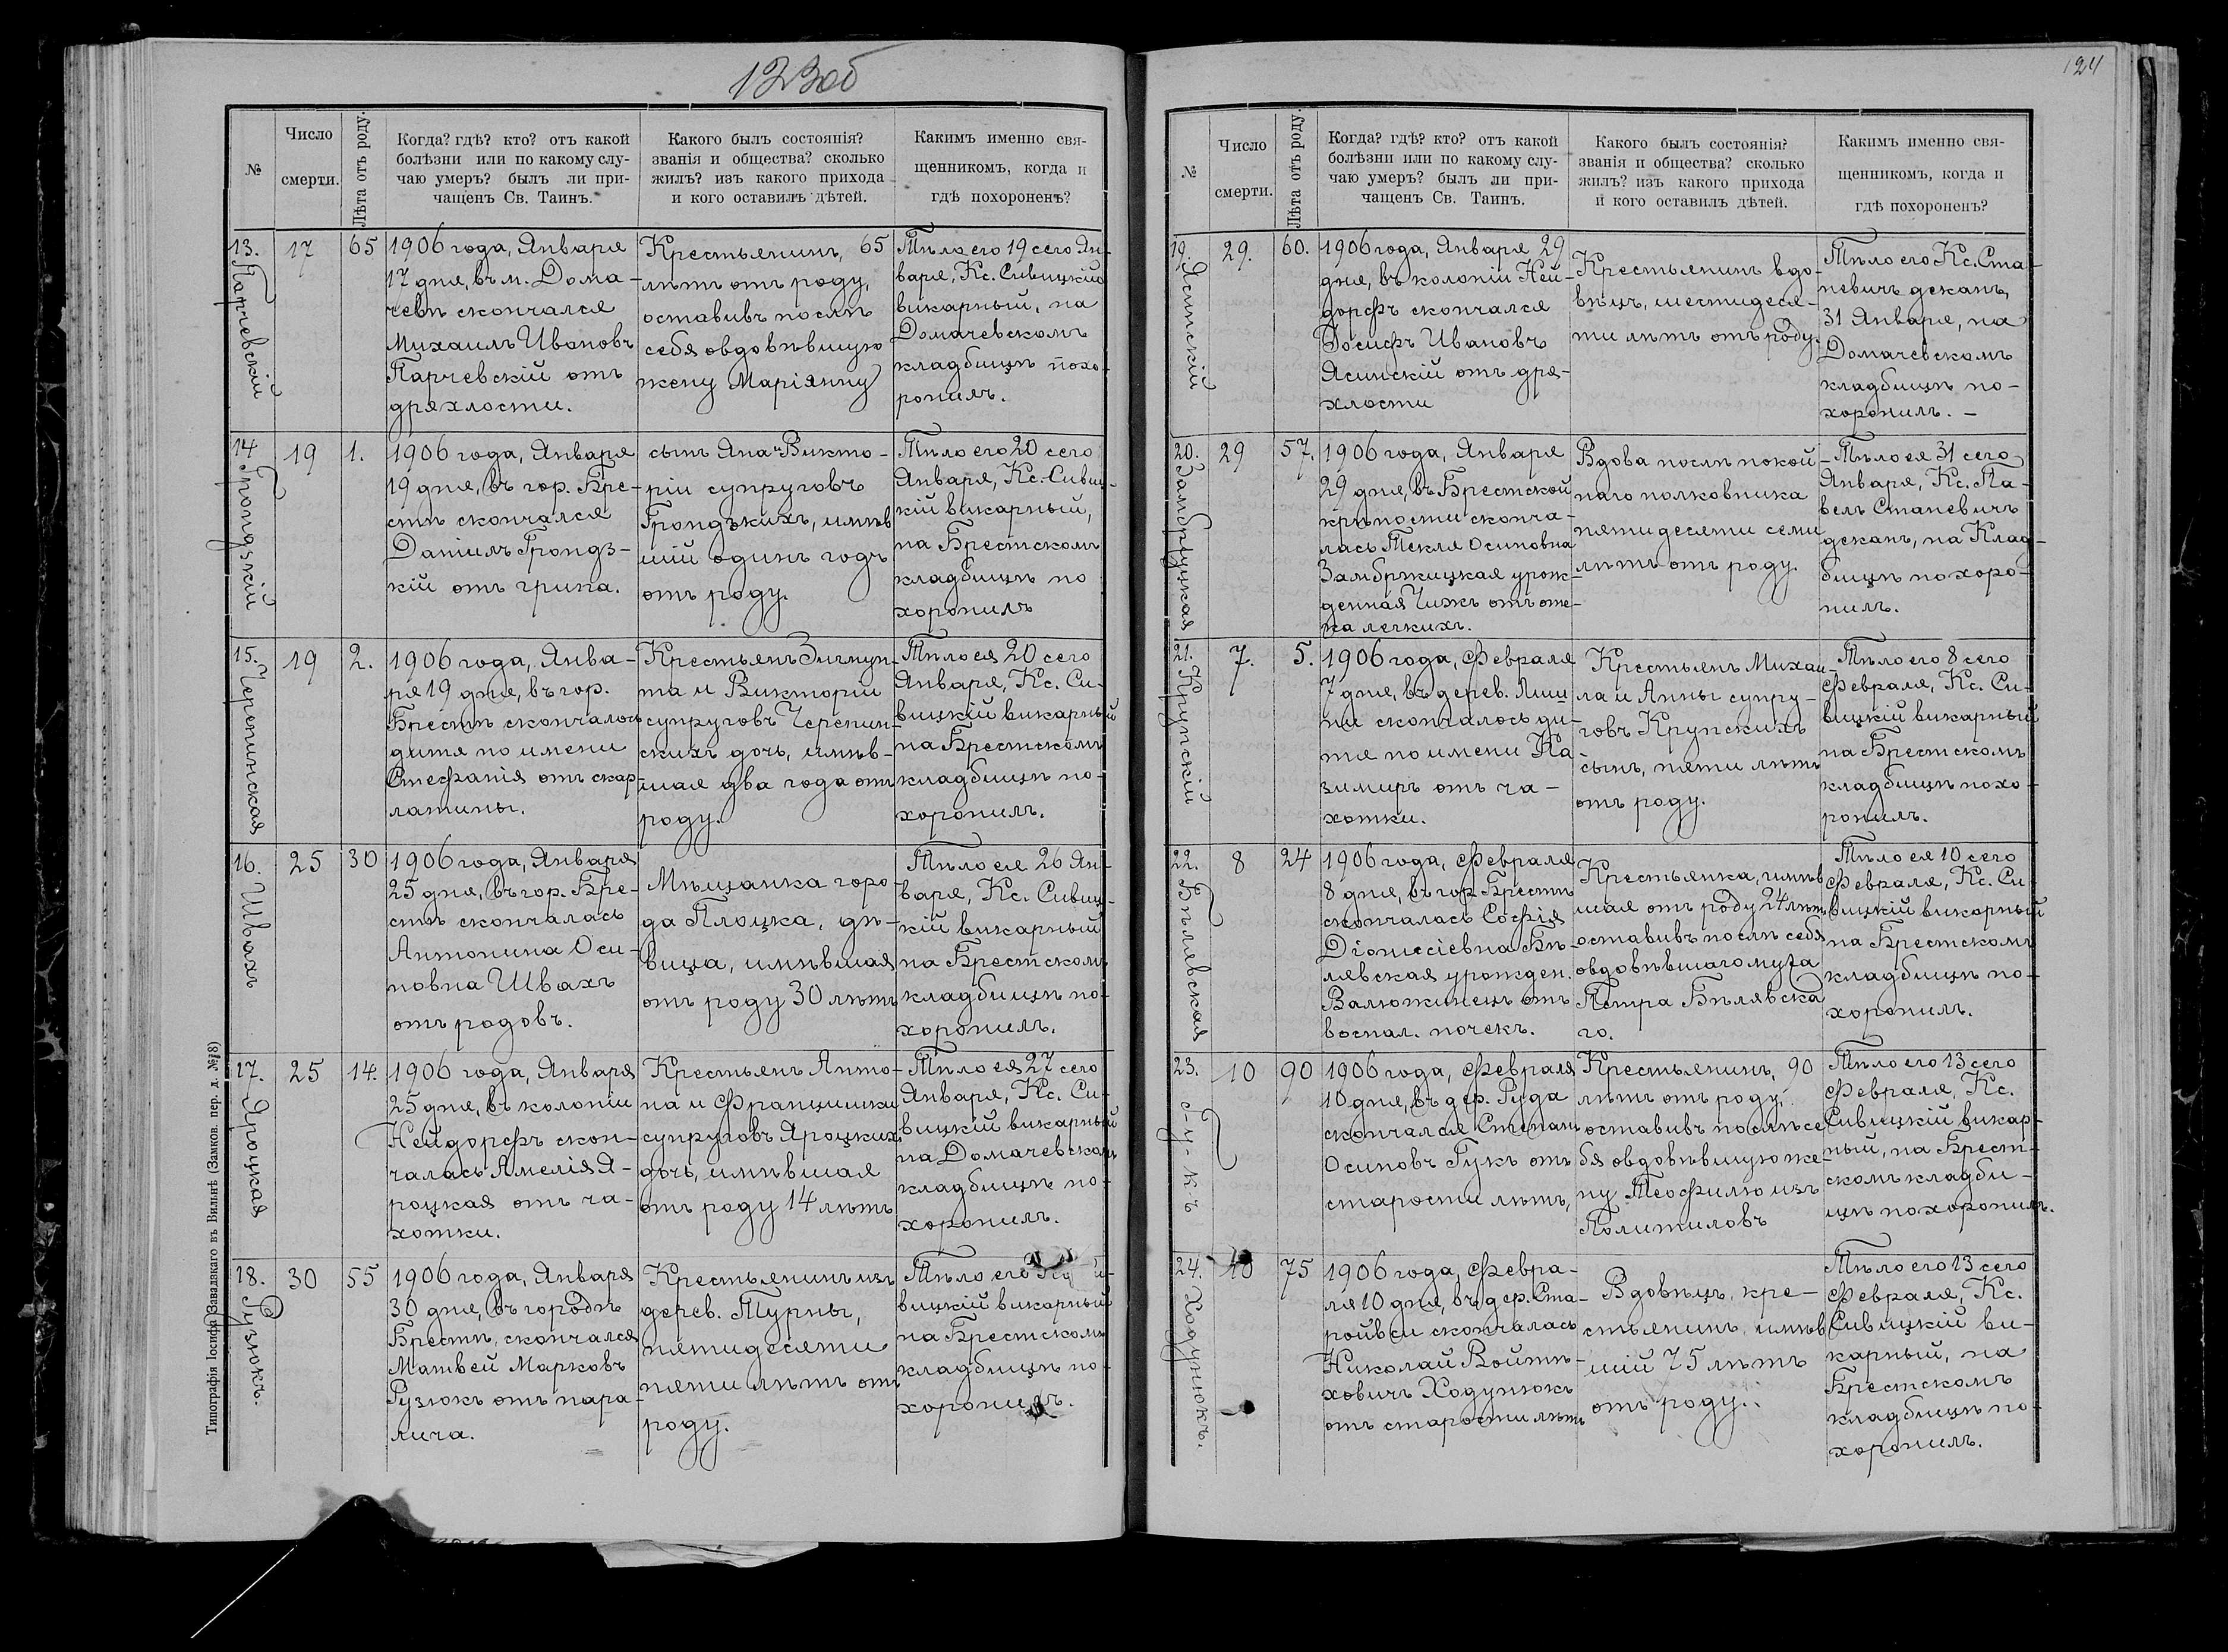 123об
№
Число
смерти.
Лѣта отъ роду.
Когда? гдѣ? кто? отъ какой
болѣзни или по какому слу-
чаю умеръ? былъ ли при-
чащенъ Св. Таинъ.
Какого былъ состоянія?
званія и общества? сколько
жилъ? изъ какого прихода
и кого оставилъ дѣтей.
Какимъ именно свя-
щенникомъ, когда и
гдѣ похороненъ?
13.
Парчевскій
17
65
1906 года, Января
17 дня, въ м. Дома-
чевѣ скончался
Михаилъ Ивановъ
Парчевскій отъ
дряхлости.
Крестьянинъ, 65
лѣтъ отъ роду,
оставивъ послѣ
себя овдовѣвшую
жену Маріянну
Тѣло его 19 сего Ян-
варя, Кс. Сивицкій
викарный, на
Домачевскомъ
кладбищѣ похо-
ронилъ.
14
Грондзкій
19
1.
1906 года, Января
19 дня, въ гор. Бре-
стѣ скончался
Даніилъ Грондз-
кій отъ грипа.
сынъ Яна и Викто-
ріи супруговъ
Грондзкихъ, имѣв
шій одинъ годъ
отъ роду.
Тѣло его 20 сего
Января, Кс. Сивиц-
кій викарный,
на Брестскомъ
кладбищѣ по
хоронилъ
15.
Черепинская
19
2.
1906 года, Янва-
ря 19 дня, въ гор.
Брестѣ скончалось
дитя по имени
Стефанія отъ скар-
латины.
Крестьянъ Зигмун-
та и Викторіи
супруговъ Черепин-
скихъ дочь, имѣв-
шая два года отъ
роду.
Тѣло ея 20 сего
Января, Кс. Си-
вицкій викарный
на Брестскомъ
кладбищѣ по-
хоронилъ.
16.
Швахъ
25
30
1906 года, Января
25 дня, въ гор. Бре-
стѣ скончалась
Антонина Оси-
повна Швахъ
отъ родовъ.
Мѣщанка горо-
да Плоцка, дѣ-
вица, имѣвшая
отъ роду 30 лѣтъ
Тѣло ея 26 Ян-
варя, Кс. Сивиц-
кій викарный
на Брестскомъ
кладбищѣ по-
хоронилъ.
17.
Яроцкая
25
14.
1906 года, Января
25 дня, въ колоніи
Нейдорфъ скон-
чалась Амелія Я-
роцкая отъ ча-
хотки.
Крестьянъ Анто-
на и Францишки
супруговъ Яроцкихъ
дочь, имѣвшая
отъ роду 14 лѣтъ
Тѣло ея 27 сего
Января, Кс. Си-
вицкій викарный
на Домачевскомъ
кладбищѣ по-
хоронилъ.
18.
Рузюкъ.
30
55
1906 года, Января
30 дня, въ городѣ
Брестѣ, скончался
Матвей Марковъ
Рузюкъ отъ пара-
лича.
Крестьянинъ изъ
дерев. Турны,
пятидесяти
пяти лѣтъ отъ
роду.
Тѣло его
вицкій викарный
на Брестскомъ
кладбищѣ по-
хоронилъ.
Типографія Іосифа Завадзкаго въ Вильнѣ (Замков. пер. д. №8)
124
№
Число
смерти.
Лѣта отъ роду.
Когда? гдѣ? кто? отъ какой
болѣзни или по какому слу-
чаю умеръ? былъ ли при-
чащенъ Св. Таинъ.
Какого былъ состоянія?
званія и общества? сколько
жилъ? изъ какого прихода
и кого оставилъ дѣтей.
Какимъ именно свя-
щенникомъ, когда и
гдѣ похороненъ?
19.
Ясинскій
29.
60.
1906 года, Января 29
дня, въ колоніи Ней-
дорфъ скончался
Іосифъ Ивановъ
Ясинскій отъ дря-
хлости
Крестьянинъ вдо-
вецъ, шестидеся-
ти лѣтъ отъ роду.
Тѣло его Кс. Ста-
невичъ деканъ,
31 Января, на
Домачевскомъ
кладбищѣ по-
хоронилъ. -
20.
Замбржицкая
29
57.
1906 года, Января
29 дня, въ Брестской
крѣпости сконча-
лась Текля Осиповна
Замбржицкая урож-
денная Чижъ отъ оте-
ка легкихъ.
Вдова послѣ покой-
наго полковника
пятидесяти семи
лѣтъ отъ роду.
Тѣло ея 31 сего
Января, Кс. Па-
велъ Станевичъ
деканъ, на Клад-
бищѣ похоро-
нилъ.
21.
Крупскій
7.
5.
1906 года, Февраля
7 дня, въ дерев. Лищ
ни скончалось ди-
тя по имени Ка
зимиръ отъ ча-
хотки.
Крестьянъ Михаи-
ла и Анны супру-
говъ Крупскихъ
сынъ, пяти лѣтъ
отъ роду.
Тѣло его 8 сего
Февраля, Кс. Си-
вицкій викарный
на Брестскомъ
кладбищѣ похо-
ронилъ.
22.
Бѣлявская
8
24
1906 года, Февраля
8 дня, въ гор. Брестѣ
скончалась Софія
Діонисіевна Бѣ-
лявская урожден.
Валюжинецъ отъ
воспал. почекъ.
Крестьянка, имѣв
шая отъ роду 24 лѣтъ
оставивъ послѣ себя
овдовѣвшаго мужа
Петра Бѣлявска
го.
Тѣло ея 10 сего
Февраля, Кс. Си-
вицкій викарный
на Брестскомъ
кладбищѣ по-
хоронилъ.
23.
Гукъ
10
90
1906 года, Февраля
10 дня, въ дер. Руда
скончался Степанъ
Осиповъ Гукъ отъ
старости лѣтъ,
Крестьянинъ, 90
лѣтъ отъ роду,
оставивъ послѣ се
бя овдовѣвшую же-
ну Теофилю изъ
Политиловъ
Тѣло его 13 сего
Февраля, Кс.
Сивицкій викар-
ный, на Брест-
скомъ кладби-
щѣ похоронилъ.
24.
Ходунюкъ.
10
75
1906 года, Февра-
ля 10 дня, въ дер. Ста-
ройвси скончалась
Николай Войтѣ-
ховичъ Ходунюкъ
отъ старости лѣтъ
Вдовецъ, кре-
стьянинъ имѣв
шій 75 лѣтъ
отъ роду.
Тѣло его 13 сего
Февраля, Кс.
Сивицкій ви-
карный, на
Брестскомъ
кладбищѣ по-
хоронилъ.